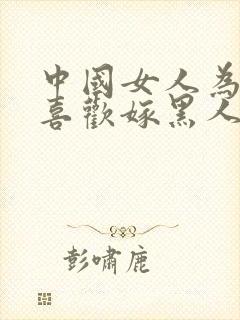 中國女人為
喜歡嫁黑人
彭嘯鹿